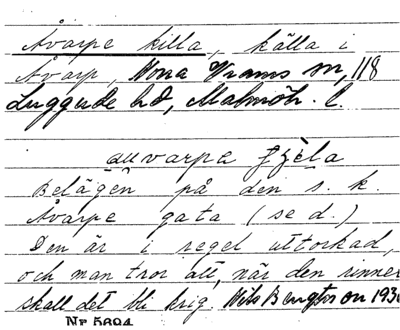 Åvarpe killa, källa i
Åvarp, Norra Vrams sn, 118
Luggude hd, Malmöh. l.
auvarpa çela
Belägen på den s. k.
Åvarpe gata (se d.)
Den är i regel uttorkad,
och man tror att, när den rinner
skall det bli krig. Nils Bengtsson 193
Nr 5694